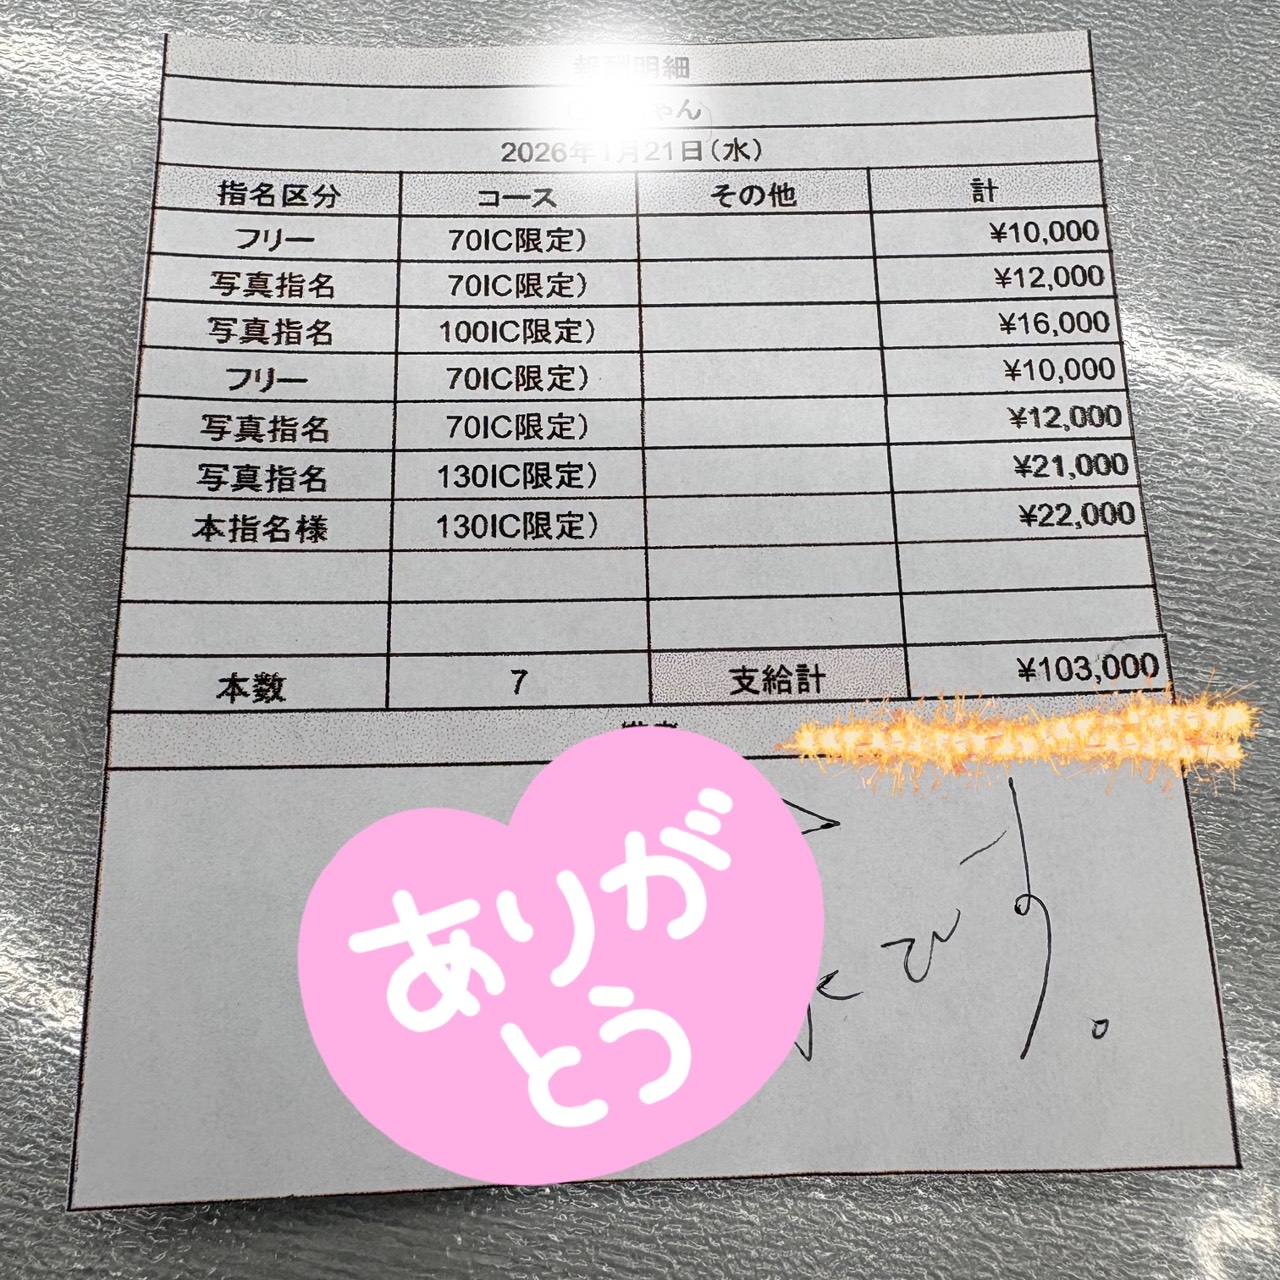 報酬明細
ゃん
2026年1月21日(水)
指名区分 コース その他 計
フリー 70IC限定) ¥10,000
写真指名 70IC限定) ¥12,000
写真指名 100IC限定) ¥16,000
フリー 70IC限定) ¥10,000
写真指名 70IC限定) ¥12,000
写真指名 130IC限定) ¥21,000
本指名様 130IC限定) ¥22,000
本数 7 支給計 ¥103,000
ありが
とう
です。